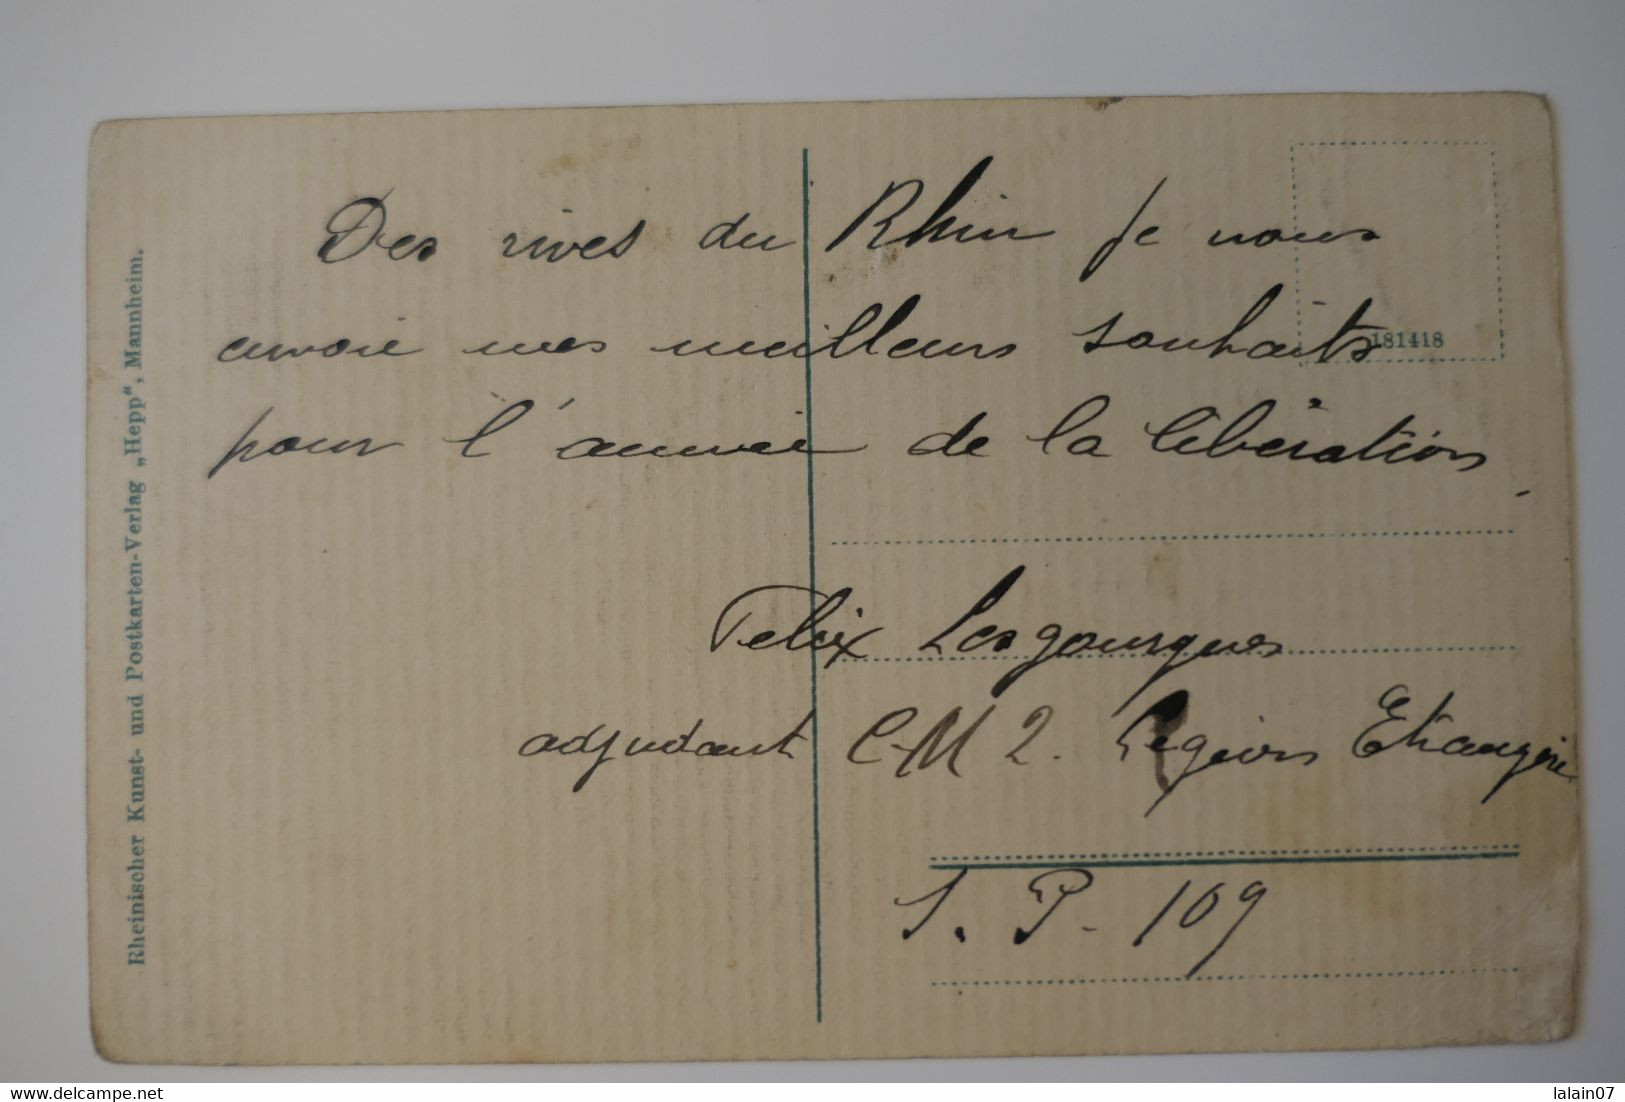 Des rives du Rhin je vous
envoie mes meilleurs souhaits
181418
pour l'année de la libération.
Felix Lesgourgues
adjudant C.M 2. Légion Etrangère
S. P. 109
Rheinischer Kunst- und Postkarten-Verlag „Hepp“, Mannheim.
delcampe.net
lalain07